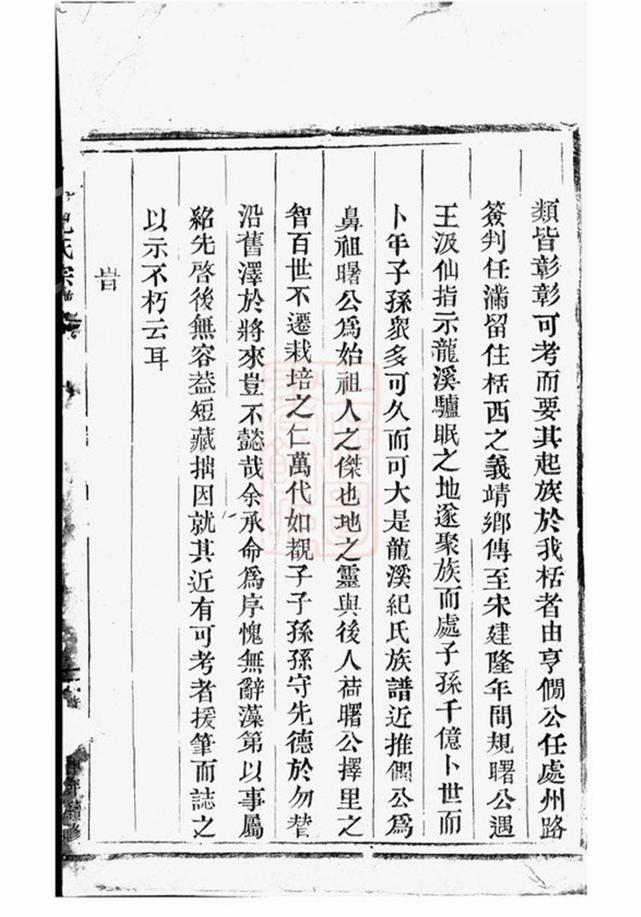 類皆彰彰可考而要其起族於我栝者由亨僩公任處州路
簽判任滿留住栝西之義靖鄉傳至宋建隆年間規曙公遇
王汲仙指示龍溪驢眠之地遂聚族而處子孫千億卜世而
卜年子孫衆多可久而可大是龍溪紀氏族譜近推僩公爲
鼻祖曙公爲始祖人之傑也地之靈與後人荷曙公擇里之
智百世不遷栽培之仁萬代如覩子子孫孫守先德於勿替
沿舊澤於將來豈不懿哉余承命爲序愧無辭藻第以事屬
紹先啓後無容葢短藏拙因就其近有可考者援筆而誌之
以示不朽云耳
旹
氏宗